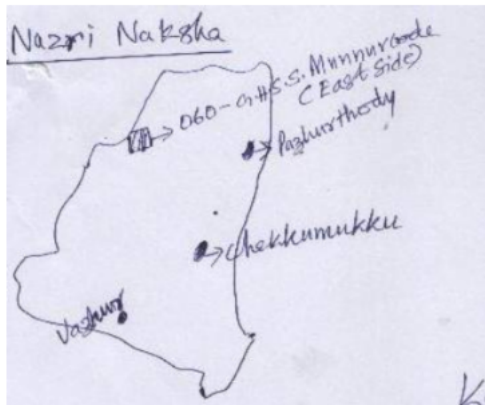 Nazri Naksha
060-G.H.S.S. Munnurcode
(East Side)
Pazhurthody
Chekkumukku
Vazhur
K